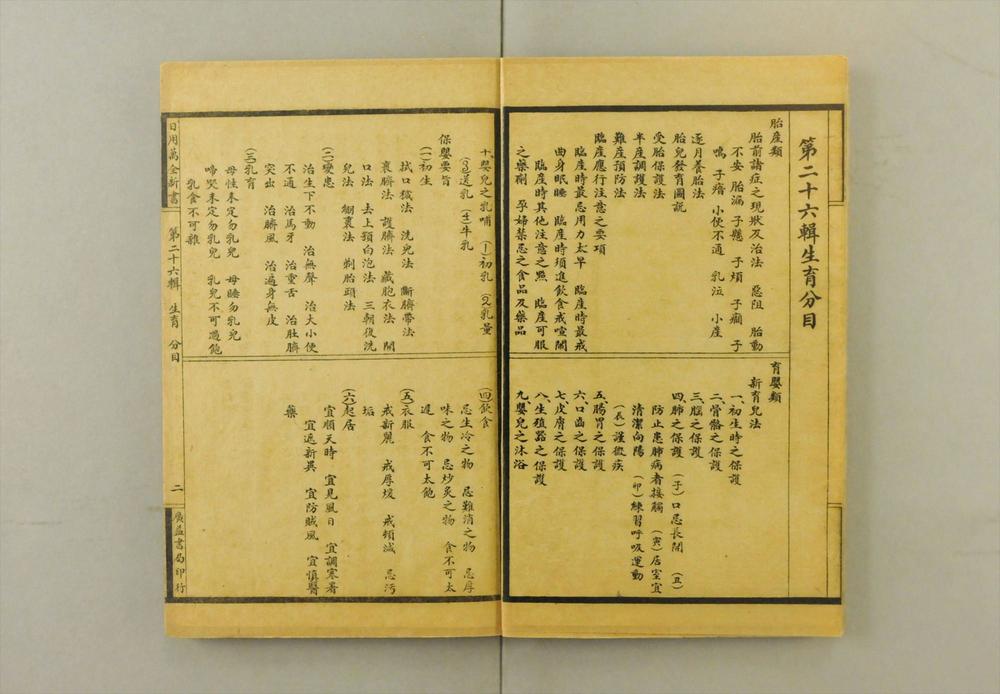 第二十六輯生育分目
胎產類
胎前諸症之現狀及治法 惡阻 胎動
不安 胎漏 子懸 子煩 子癇 子
鳴 子瘖 小便不通 乳泣 小產
逐月養胎法
胎兒發育圖說
受胎保護法
半產調護法
難產預防法
臨產應行注意之要項
臨產時最忌用力太早 臨產時最戒
曲身眠睡 臨產時須進飲食戒喧鬧
臨產時其他注意之點 臨產可服
之藥劑 孕婦禁忌之食品及藥品
育嬰類
新育兒法
一、初生時之保護
二、骨骼之保護
三、腦之保護
四、肺之保護 (子)口忌長開 (丑)
防止患肺病者接觸 (寅)居室宜
清潔向陽 (卯)練習呼吸運動
(辰)謹微疾
五、腸胃之保護
六、口齒之保護
七、皮膚之保護
八、生殖器之保護
九、嬰兒之沐浴
十、嬰兒之乳哺 (1)初乳 (2)乳量
(3)送乳 (4)牛乳
保嬰要旨
(一)初生
拭口穢法 洗兒法 斷臍帶法
裹臍法 護臍法 藏胞衣法 開
口法 去上顎白泡法 三朝後洗
兒法 綳裹法 剃胎頭法
(二)變患
治生下不動 治無聲 治大小便
不通 治馬牙 治重舌 治肚臍
突出 治臍風 治遍身無皮
(三)乳育
母性未定勿乳兒 母睡勿乳兒
啼哭未定勿乳兒 乳兒不可過飽
乳食不可雜
(四)飲食
忌生冷之物 忌難消之物 忌厚
味之物 忌炒炙之物 食不可太
遲 食不可太飽
(五)衣服
戒新麗 戒厚煖 戒頻減 忌污
垢
(六)起居
宜順天時 宜見風日 宜調寒暑
宜遠新異 宜防賊風 宜慎醫
藥
日用萬全新書 第二十六輯 生育 分目 二 廣益書局印行